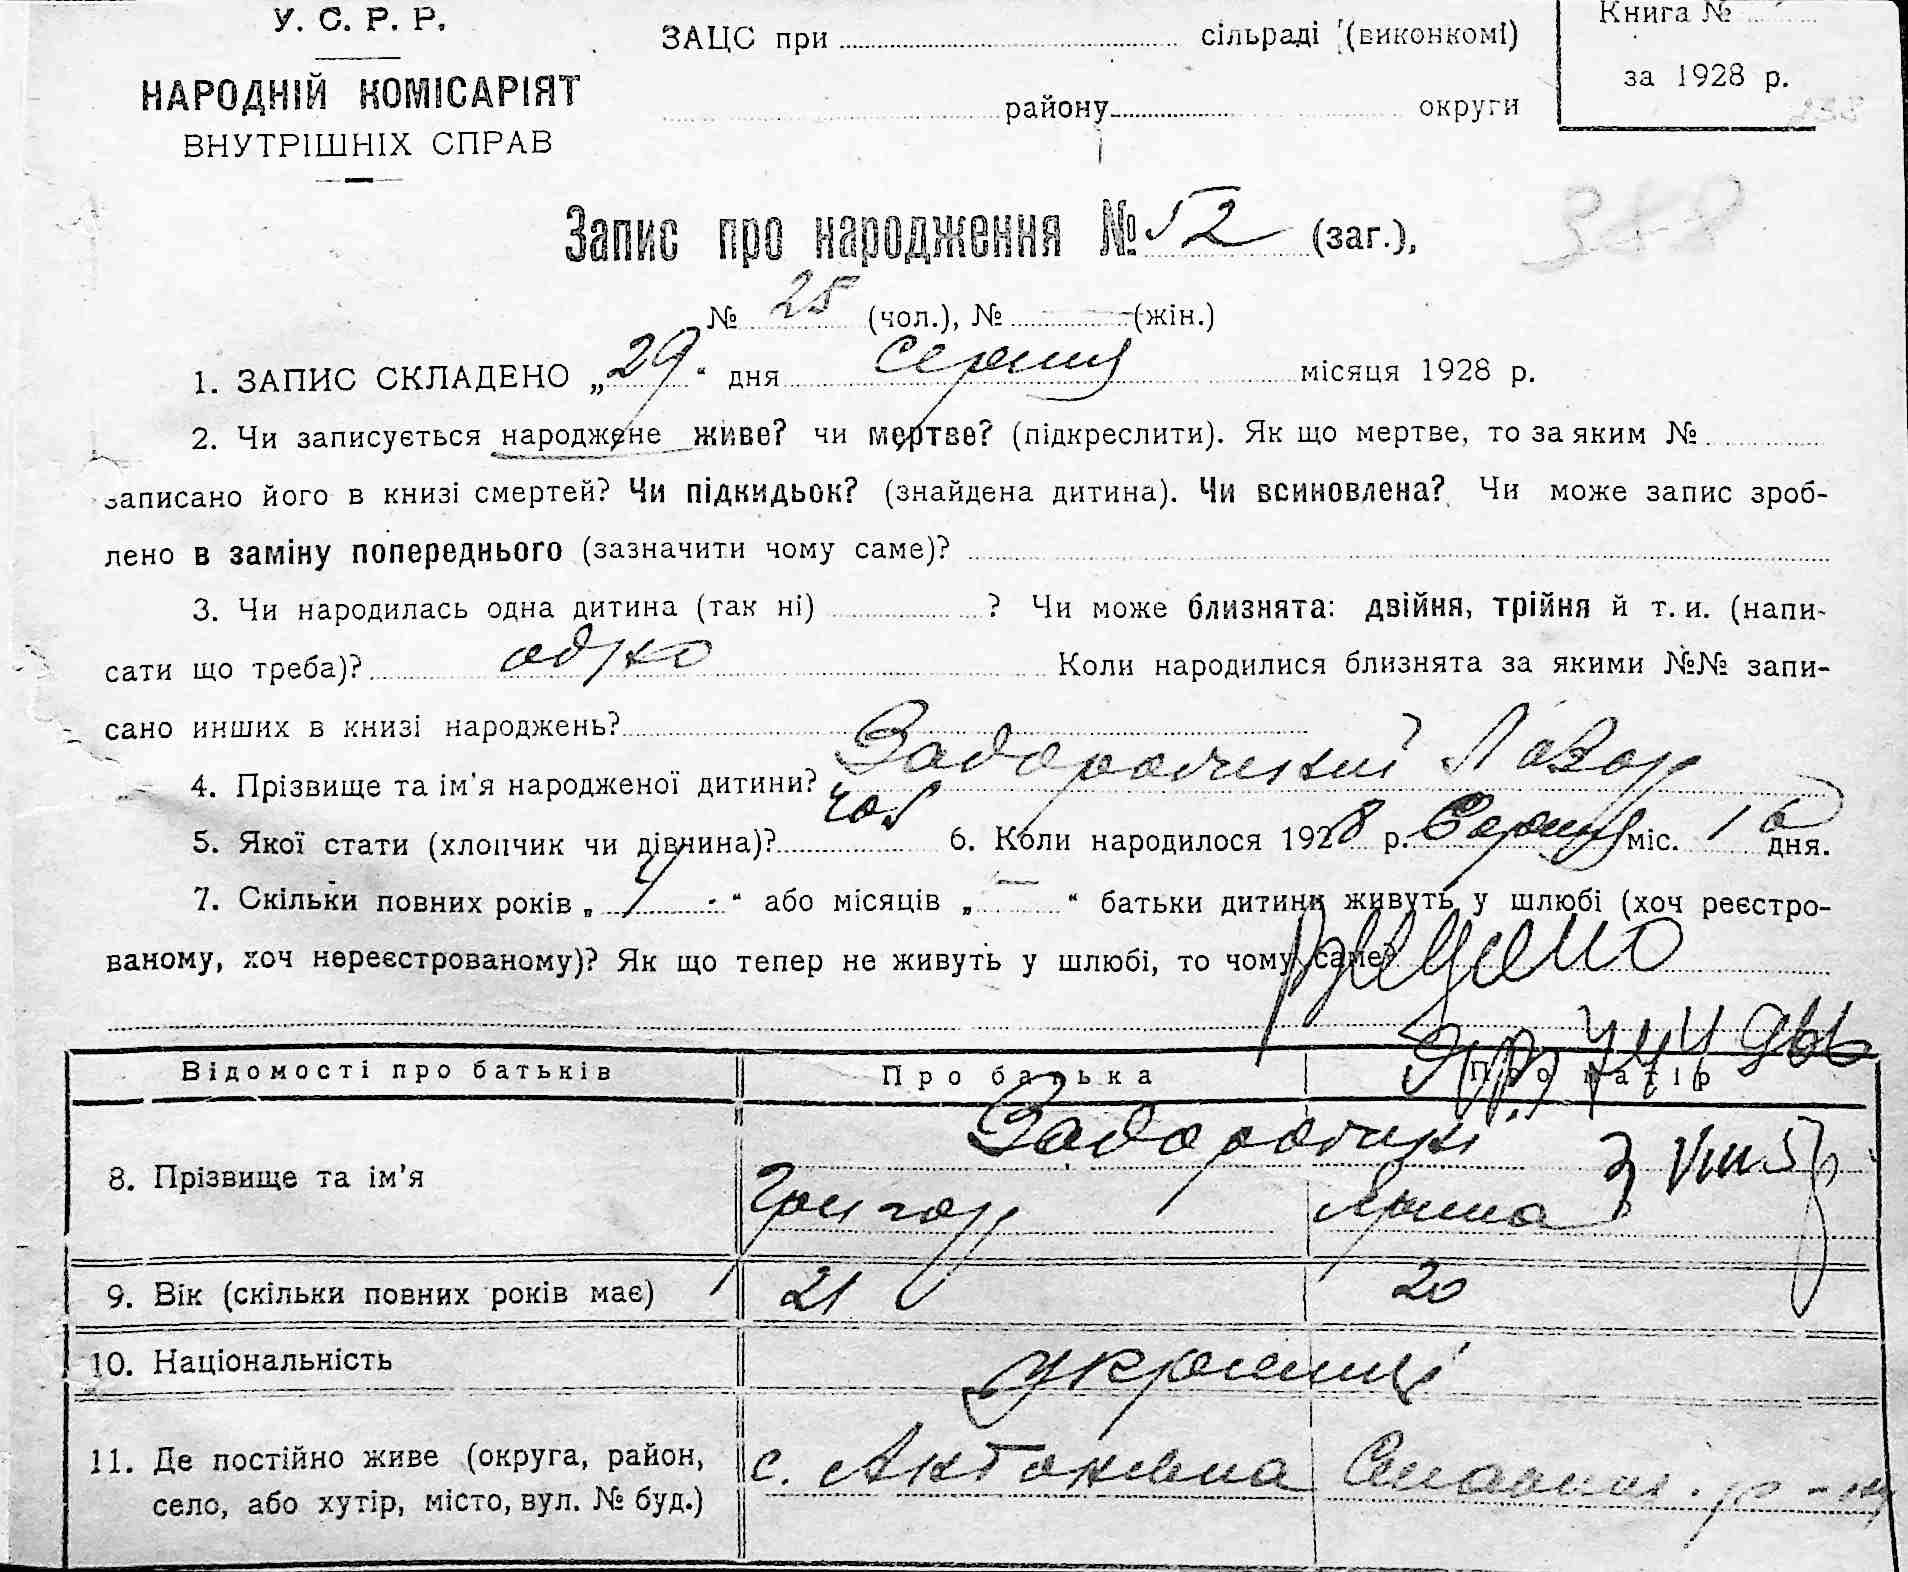 У. С. Р. Р.
НАРОДНІЙ КОМІСАРІЯТ
ВНУТРІШНІХ СПРАВ
ЗАЦС при сільраді (виконкомі)
району округи
Книга №
за 1928 р.
Запис про народження № 52 (заг.),
388
№ 25 (чол.), № — (жін.)
1. ЗАПИС СКЛАДЕНО „29“ дня серпня місяця 1928 р.
2. Чи записується народжене живе? чи мертве? (підкреслити). Як що мертве, то за яким №
записано його в книзі смертей? Чи підкидьок? (знайдена дитина). Чи всиновлена? Чи може запис зроб-
лено в заміну попереднього (зазначити чому саме)?
3. Чи народилась одна дитина (так ні) ? Чи може близнята: двійня, трійня й т. и. (напи-
сати що треба)? одно Коли народилися близнята за якими №№ запи-
сано инших в книзі народжень?
4. Прізвище та ім'я народженої дитини? Задорожний Лазар
5. Якої стати (хлопчик чи дівчина)? чол 6. Коли народилося 1928 р. Серпня міс. 16 дня.
7. Скільки повних років „1“ або місяців „—“ батьки дитини живуть у шлюбі (хоч реєстро-
ваному, хоч нереєстрованому)? Як що тепер не живуть у шлюбі, то чому саме?
Відомості про батьків Про батька Про матір
8. Прізвище та ім'я Задорожні
Григор Ярина
9. Вік (скільки повних років має) 21 20
10. Національність українці
11. Де постійно живе (округа, район, с. Антонівна
село, або хутір, місто, вул. № буд.)